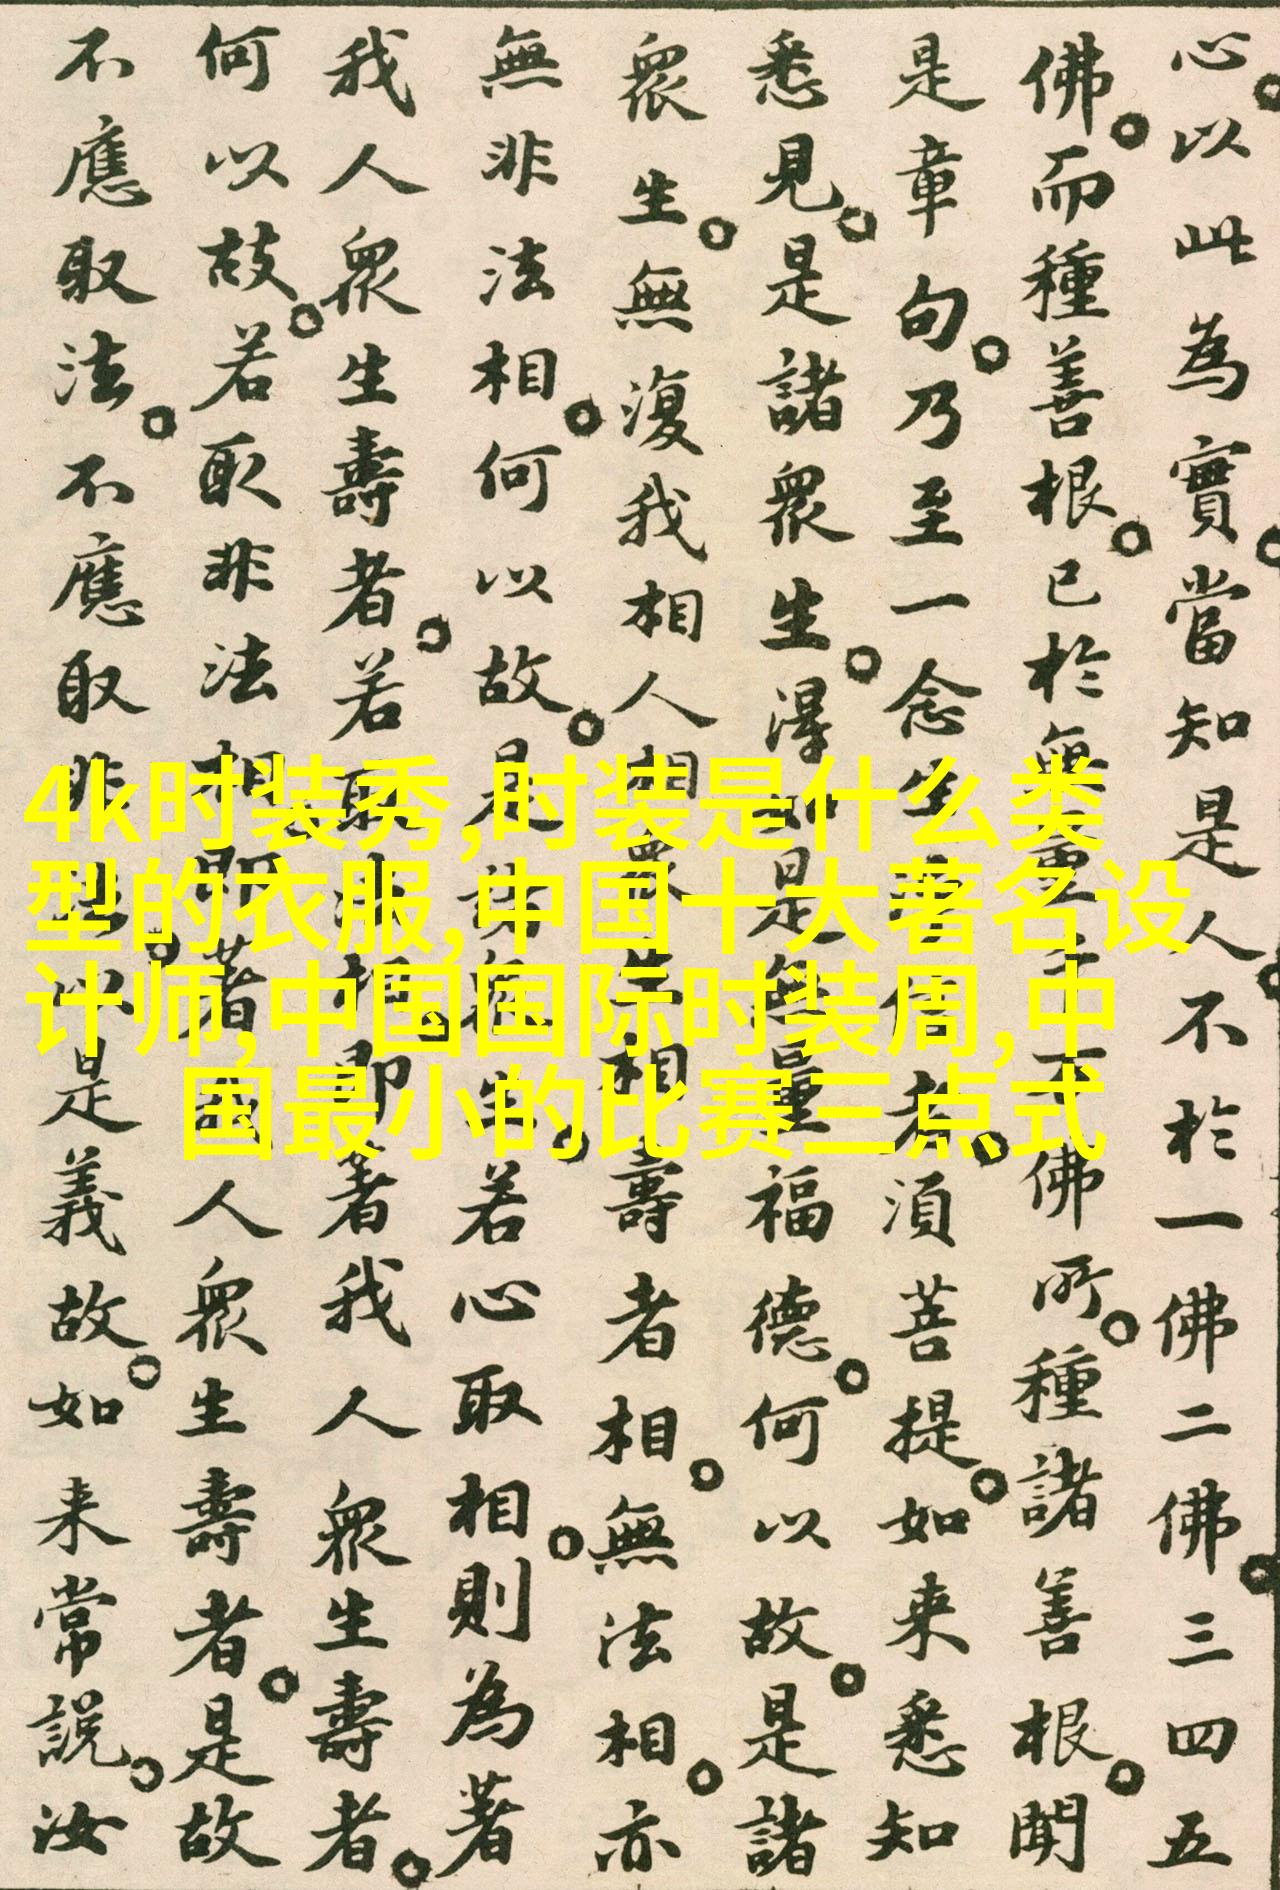 心。以此為實。當知是人。不於一佛二佛。三四五
佛。而種善根。已於無量千万佛所。種諸善根。聞
是章句。乃至一念生淨信者。須菩提。如来悉知
悉見。是諸眾生。淂如是無量福德。何以故。是諸
眾生。無復我相人相眾生相壽者相。無法相。亦
無非法相。何以故。是諸眾生。若心取相。則為著
我人眾生壽者。若取法相。即著我人眾生壽者。
何以故。若取非法相。即著我人眾生壽者。是故
不應取法。不應取非法。以是義故。如来常說。汝
4k时装秀,时装是什么类
型的衣服,中国十大著名设
计师,中国国际时装周,中
国最小的比赛三点式